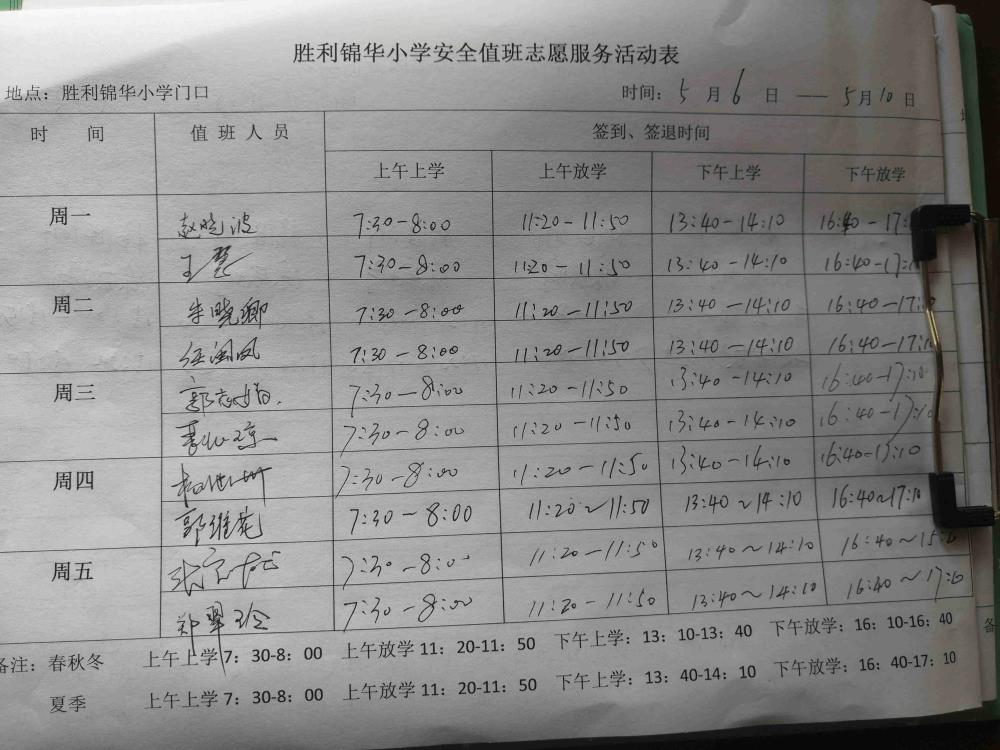 胜利锦华小学安全值班志愿服务活动表
地点：胜利锦华小学门口 时间：5月6日——5月10日
时 间 值 班 人 员 签到、签退时间
上午上学 上午放学 下午上学 下午放学
周一 赵晓波 7:30-8:00 11:20-11:50 13:40-14:10 16:40-17:
王 7:30-8:00 11:20-11:50 13:40-14:10 16:40-17:1
周二 朱晓卿 7:30-8:00 11:20-11:50 13:40-14:10 16:40-17:
任国凤 7:30-8:00 11:20-11:50 13:40-14:10 16:40-17:
周三 郭 7:30-8:00 11:20-11:50 13:40-14:10 16:40-17:10
7:30-8:00 11:20-11:50 13:40-14:10 16:40-17:10
周四 7:30-8:00 11:20-11:50 13:40-14:10 16:40-17:10
郭维苑 7:30-8:00 11:20~11:50 13:40~14:10 16:40~17:10
周五 张 7:30-8:00 11:20-11:50 13:40~14:10 16:40~
郑翠玲 7:30-8:00 11:20-11:50 13:40~14:10 16:40~17:10
备注：春秋冬 上午上学7：30-8：00 上午放学11：20-11：50 下午上学：13：10-13：40 下午放学：16：10-16：40
夏季 上午上学7：30-8：00 上午放学11：20-11：50 下午上学：13：40-14：10 下午放学：16：40-17：10